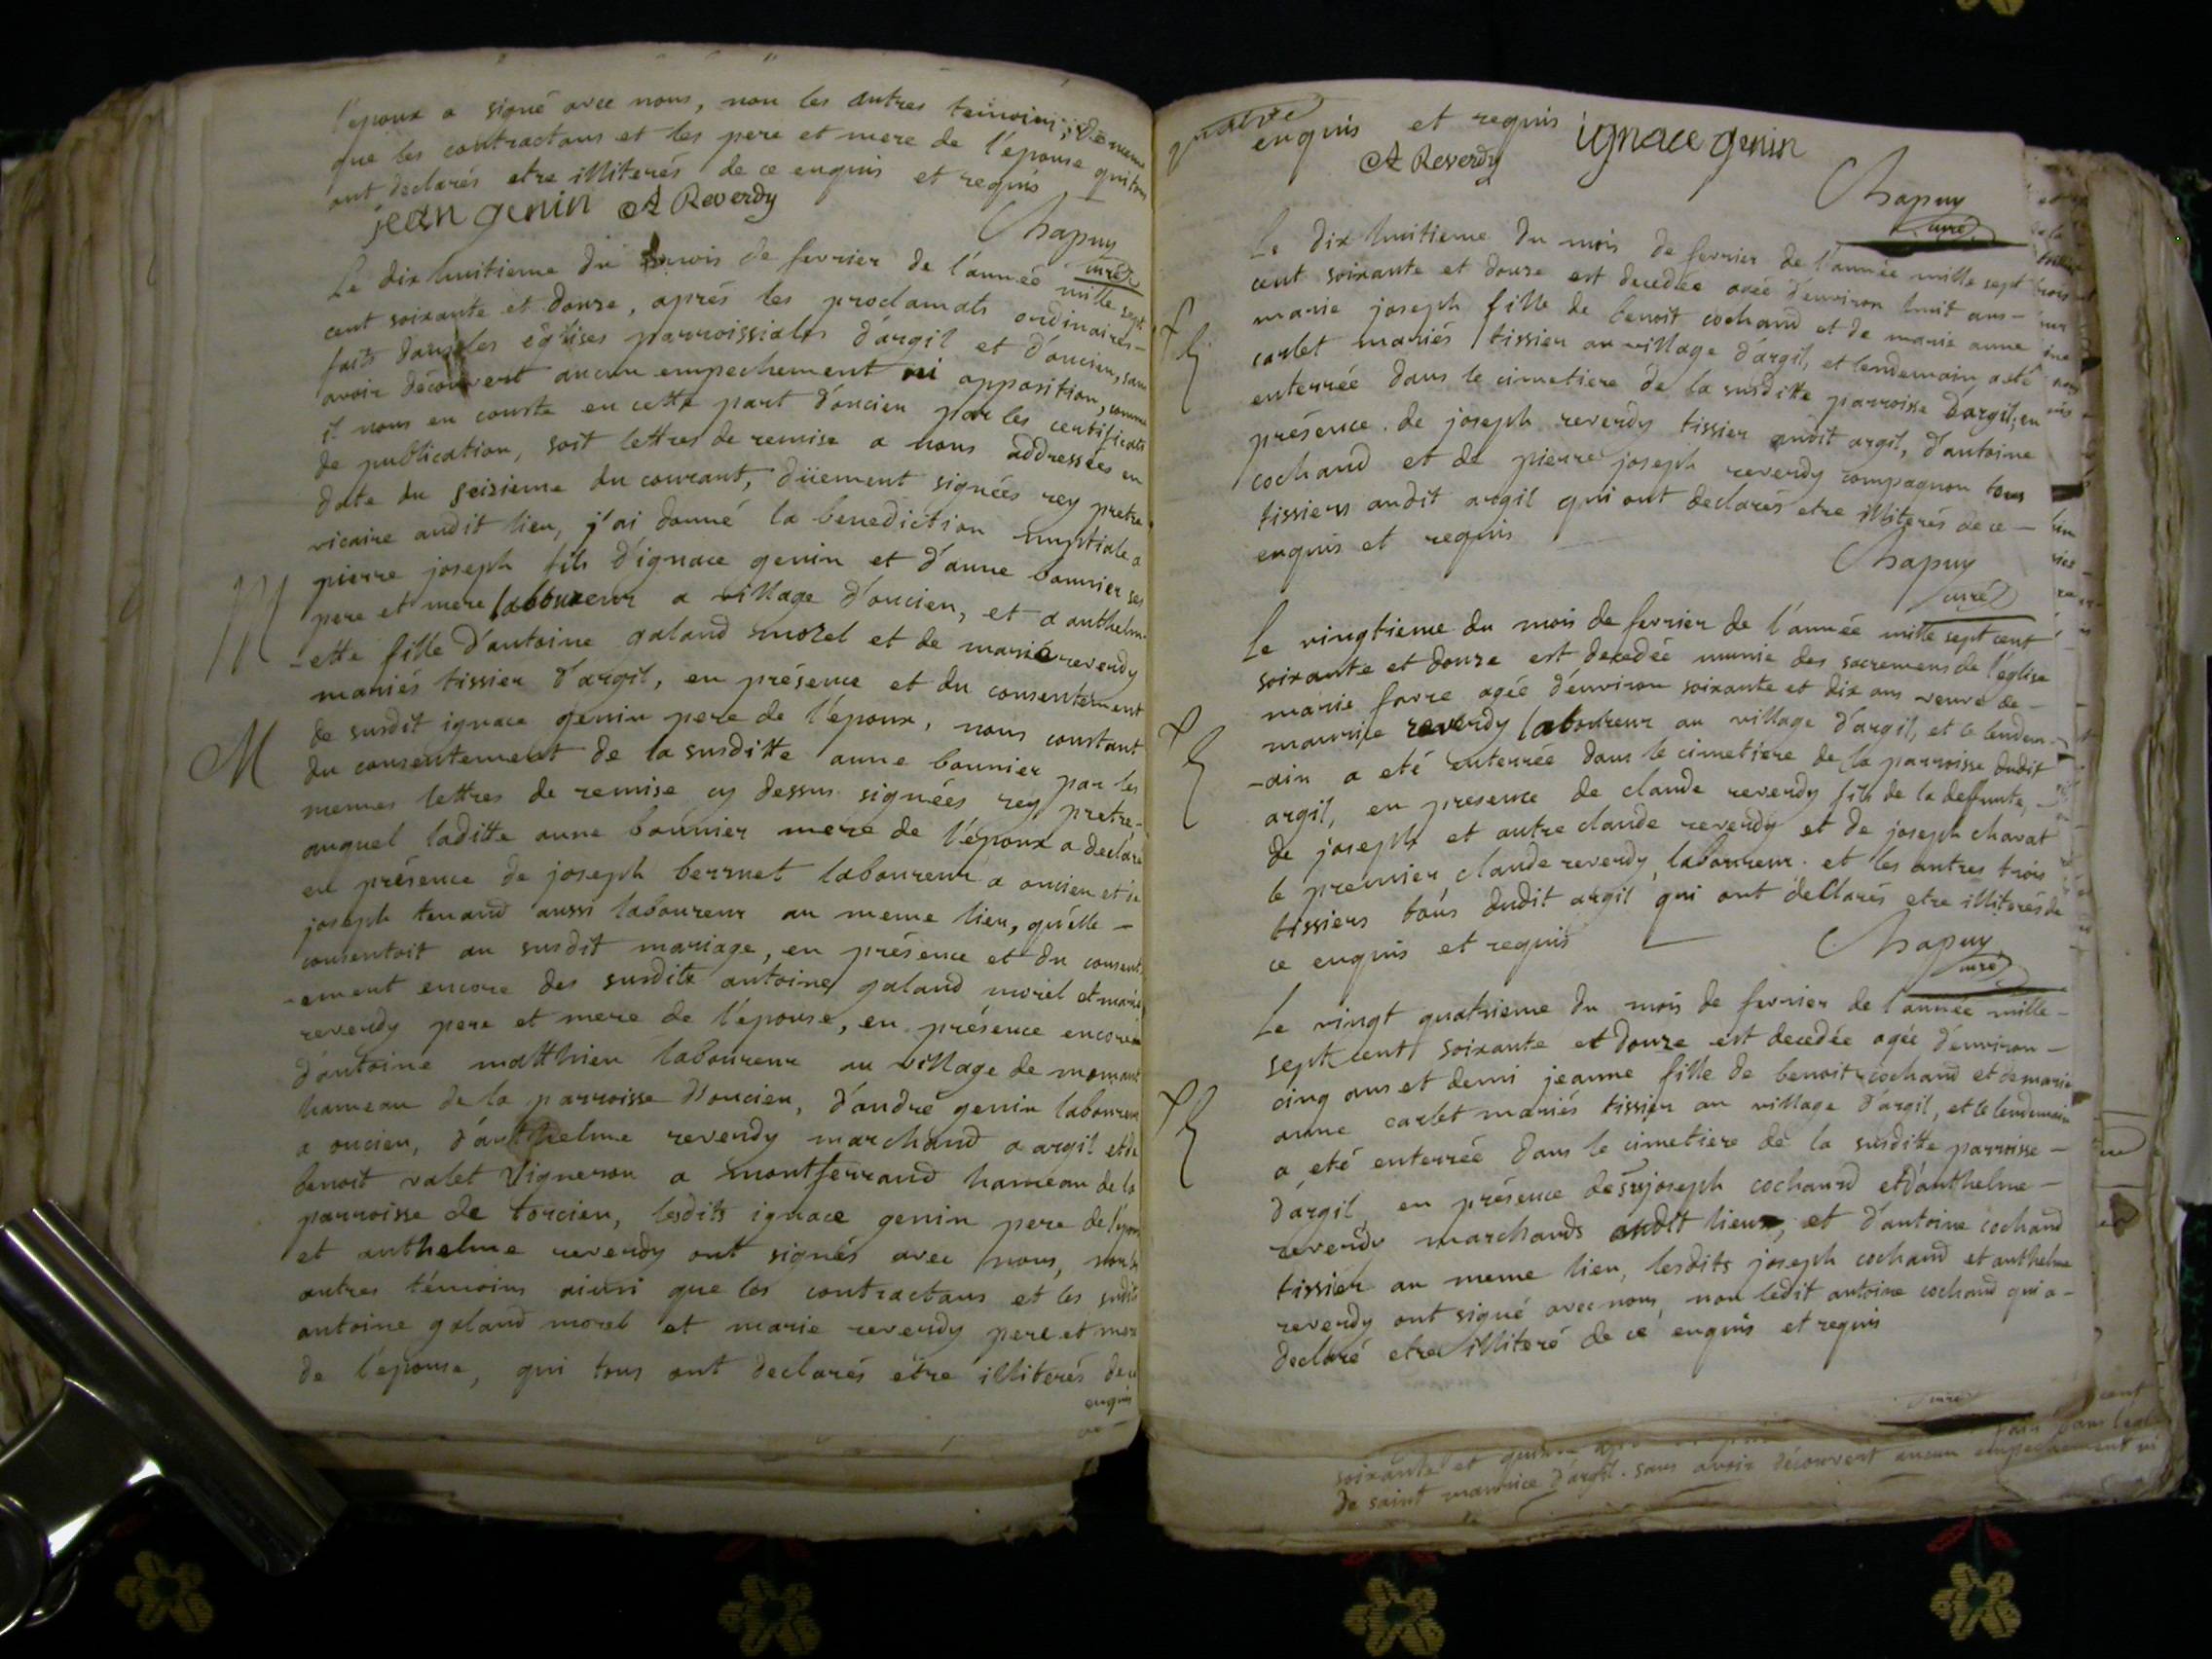 l'epoux a signé avec nous, non les autres temoins; de meme
que les contractans et les pere et mere de l'epouse qui tous
ont declarés etre illiterés de ce enquis et requis
jean genin A Reverdy
Chapuy
curé
Le dix huitieme du mois de fevrier de l'année mille sept
cent soixante et douze, aprés les proclamats ordinaires-
faits dans les églises parroissiales d'argil et d'oncien, sans
avoir découvert aucun empechement ni opposition, comme
il nous en conste en cette part d'oncien par les certificats
de publication, soit lettres de remise a nous addressées en
date du seizieme du courant, düement signées rey pretre
vicaire audit lieu, j'ai donné la benediction nuptiale a
pierre joseph fils d'ignace genin et d'anne bounier ses
pere et mere laboureur a village d'oncien, et a anthelm-
-ette fille d'antoine galand morel et de marie reverdy
mariés tissier d'argil, en présence et du consentement
de susdit ignace genin pere de l'époux, nous constant
M du consentement de la susditte anne bounier par les
memes lettres de remise cy dessus signées rey pretre-
auquel laditte anne bounier mere de l'époux a declaré
en présence de joseph berrnet laboureur a oncien et de
joseph tenand aussi laboureur au meme lieu, qu'elle -
consentoit au susdit mariage, en présence et du consent-
-ement encore des susdits antoine galand morel et marie
reverdy pere et mere de l'épouse, en présence encore
d'antoine matthieu laboureur au village de
hameau de la parroisse d'oncien, d'andré genin laboureur
a oncien, d'anthelme reverdy marchand a argil et de
benoit valet Vigneron a montferrand hameau de la
parroisse de torcieu, lesdits ignace genin pere de l'époux
et anthelme reverdy ont signés avec nous, non les
autres témoins ainsi que les contractans et les susdits
antoine galand morel et marie reverdy pere et mere
de l'épouse, qui tous ont declarés etre illiterés de ce
enquis
enquis et requis ignace genin
A Reverdy
Chapuy
curé
Le dix huitieme du mois de fevrier de l'année mille sept
cent soixante et douze est decedée agée d'environ huit ans -
marie joseph fille de benoit cochand et de marie anne
carlet mariés tissier au village d'argil, et lendemain a eté
enterrée dans le cimetiere de la susditte parroisse d'argil, en
présence de joseph reverdy tissier audit argil, d'antoine
cochand et de pierre joseph reverdy compagnon tous
tissiers audit argil qui ont declarés etre illiterés de ce -
enquis et requis
Chapuy
curé
Le vingtieme du mois de fevrier de l'année mille sept cent
soixante et douze est decedée munie des sacremens de l'église
marie favre agée d'environ soixante et dix ans veuve de -
maurice reverdy laboureur au village d'argil, et le lendem-
-ain a eté enterrée dans le cimetiere de la parroisse dudit
argil, en presence de claude reverdy fils de la deffunte,
de joseph et autre claude reverdy et de joseph chavat
le premier claude reverdy laboureur et les autres trois
tissiers tous dudit argil qui ont declarés etre illiterés de
ce enquis et requis
Chapuy
curé
Le vingt quatrieme du mois de fevrier de l'année mille -
sept cent soixante et douze est decedée agée d'environ -
cinq ans et demi jeanne fille de benoit cochand et de marie
anne carlet mariés tissier au village d'argil, et le lendemain
a eté enterrée dans le cimetiere de la susditte parroisse -
d'argil en présence de joseph cochand et d'anthelme -
reverdy marchands audit lieu, et d'antoine cochand
tissier au meme lieu, lesdits joseph cochand et anthelme
reverdy ont signé avec nous, non ledit antoine cochand qui a -
declaré etre illiteré de ce enquis et requis
curé
soixante et
de saint maurice d'argil sans avoir découvert aucun empechement ni